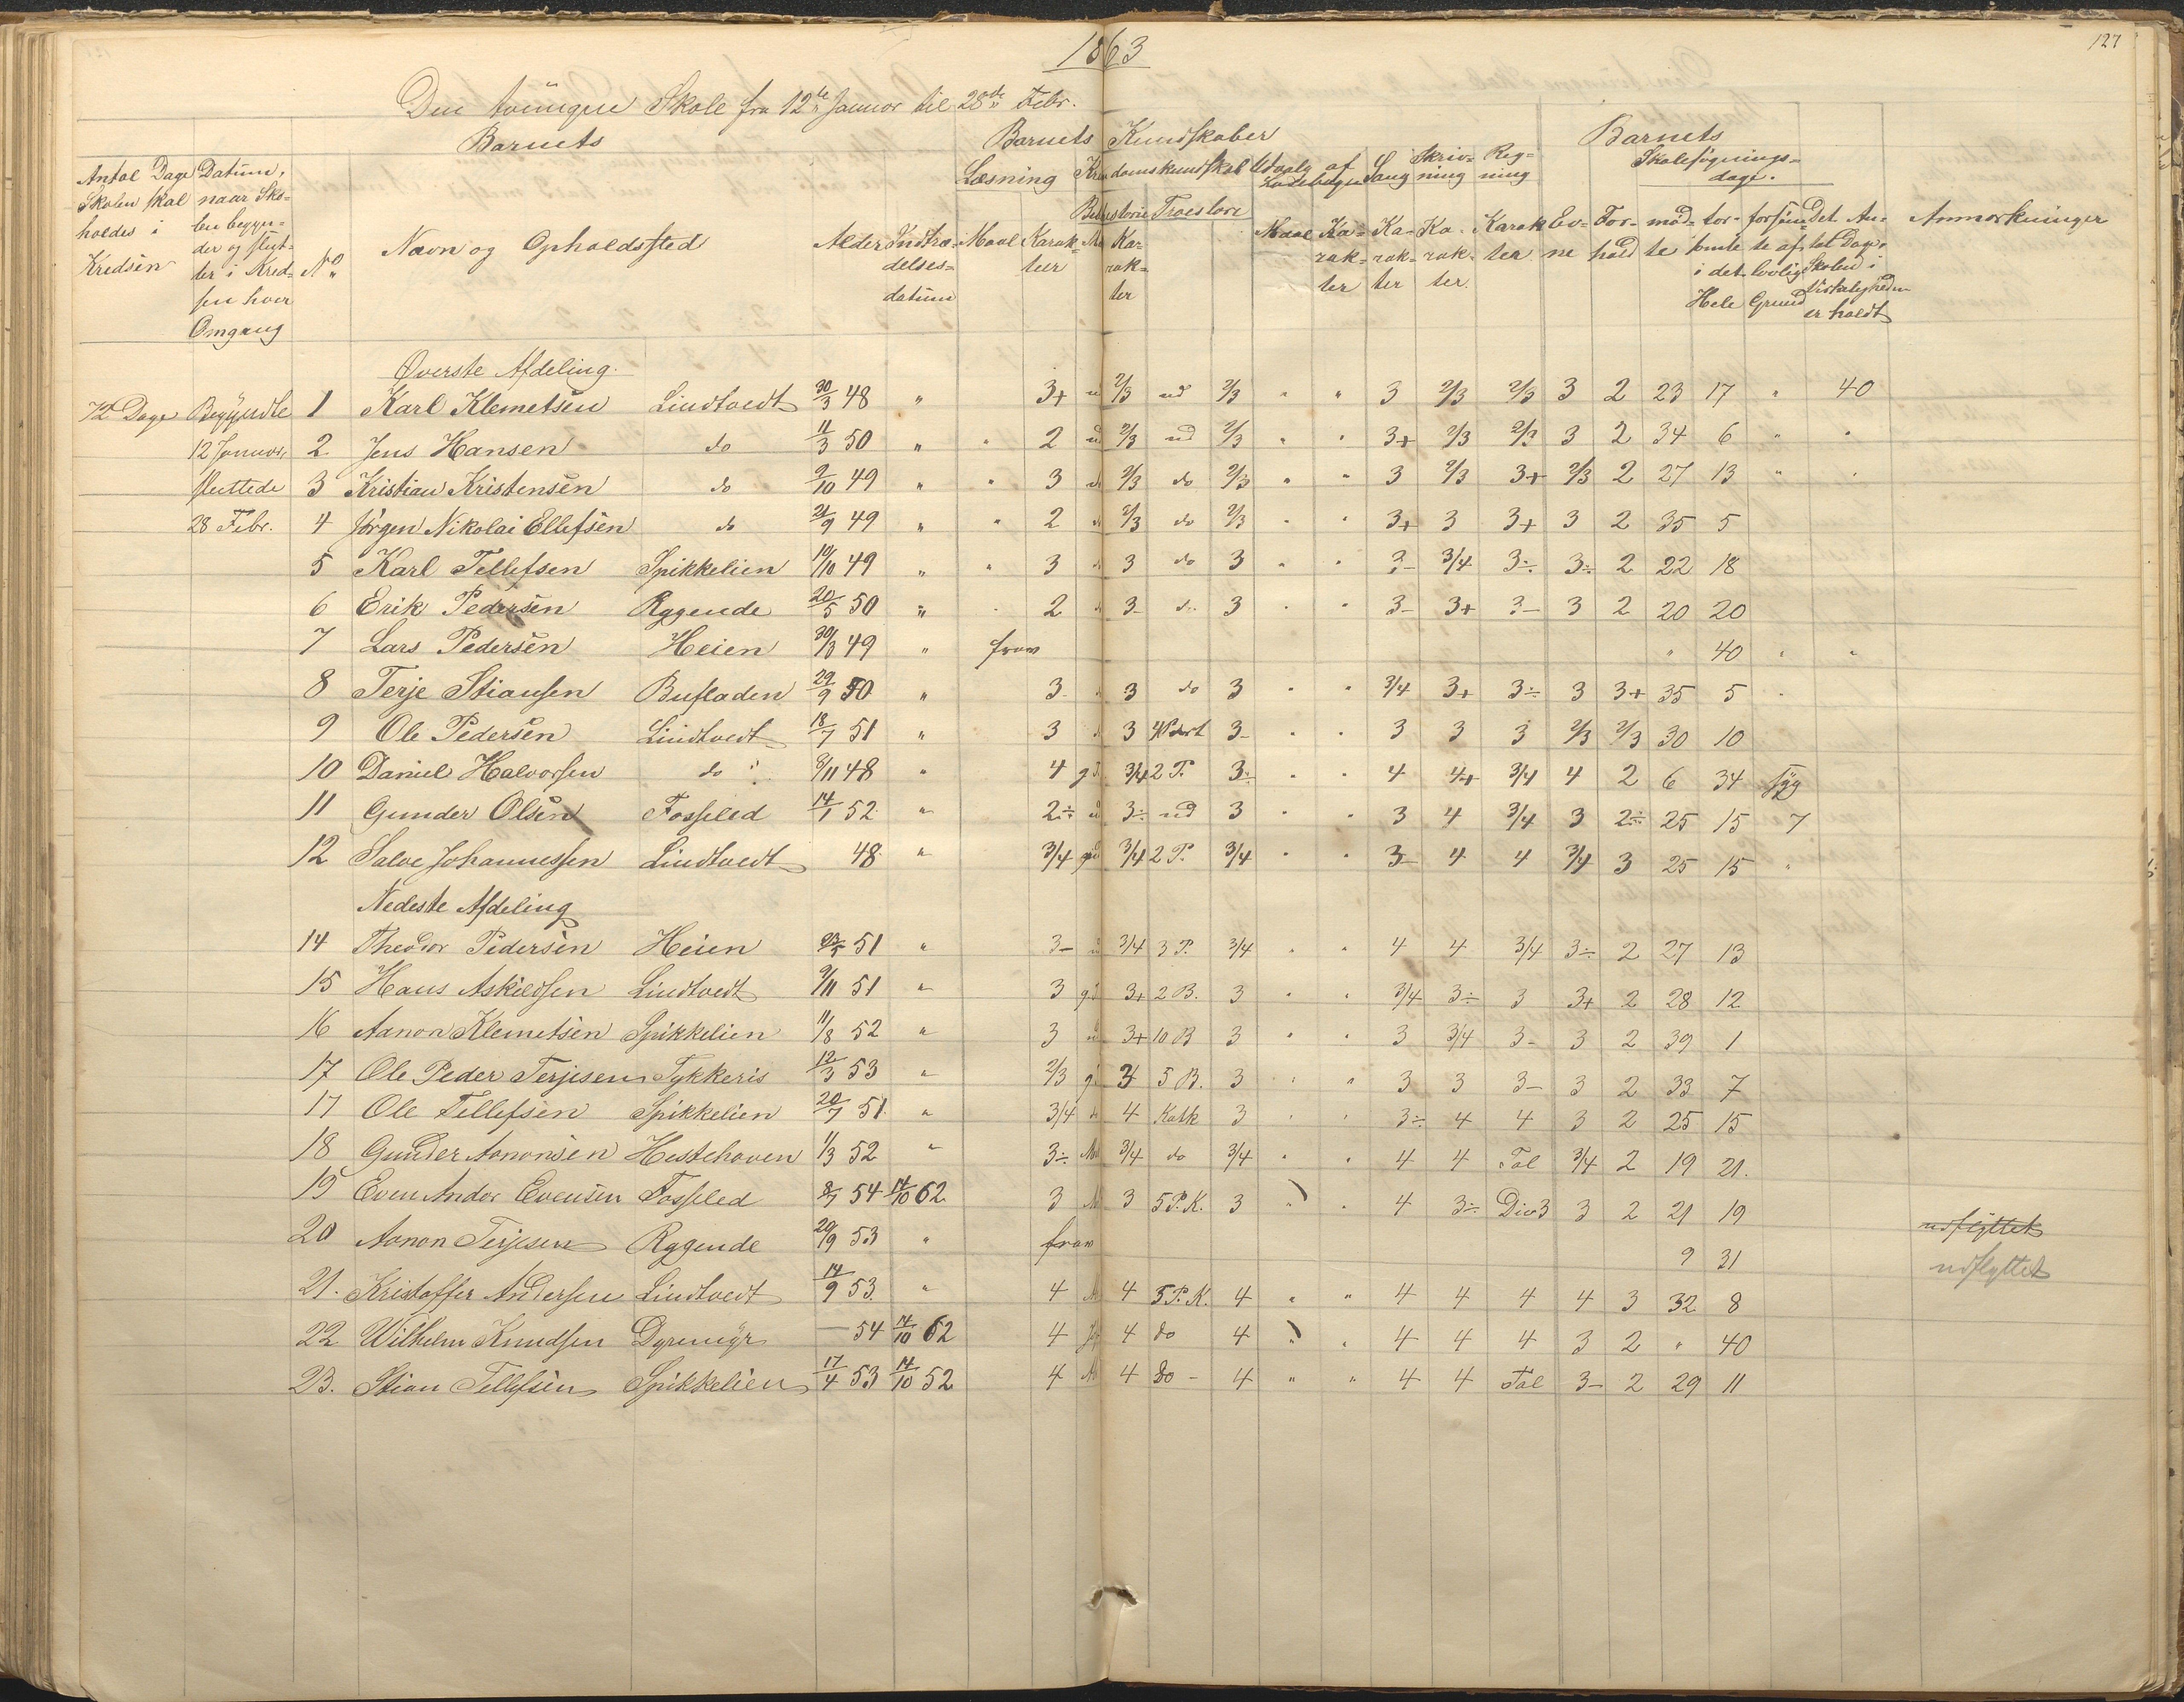 1863
127
Den tvungne Skole fra 12te Januar til 28de Febr.
Barnets
Barnets Kundskaber
Barnets
Antal Dage Skolen skal holdes i Kredsen
Datum, naar Skolen begynder og slutter i Kredsen hver Omgang
No
Navn og Opholdssted
Alder
Indtrædelsesdatum
Læsning
Maal Karakter
Kristendomskundskab
Troeslære
Karakter
Udvalg af Læsebogen
Maal Karakter
Sang Karakter
Skrivning Karakter
Regning Karakter
Evne
Forhold
Skolesøgningsdage.
mødte
forsømte i det Hele
forsømte af lovlig Grund
Det Antal Dage, Skolen i Virkeligheden er holdt
Anmærkninger
Øverste Afdeling.
72 Dage Begyndte 1 Karl Klemetsen Lindtvedt 30/3 48 " 3+ 2/3 ud 2/3 " " 3 2/3 2/3 3 2 23 17 " 40
12 Januar, 2 Jens Hansen do 11/3 50 " " 2 ud 2/3 ud 2/3 " " 3+ 2/3 2/3 3 2 34 6 " "
sluttede 3 Kristian Kristensen do 2/10 49 " " 3 2/3 do 2/3 " " 3 2/3 3+ 2/3 2 27 13 " "
28 Febr. 4 Jørgen Nikolai Ellefsen do 21/9 49 " " 2 2/3 do 2/3 " " 3+ 3 3+ 3 2 35 5
5 Karl Tellefsen Spikkelien 10/10 49 " " 3 3 do 3 " " 3- 3/4 3÷ 3÷ 2 22 18
6 Erik Pedersen Rggende 20/5 50 " " 2 3- do 3 " " 3- 3+ 3- 3 2 20 20
7 Lars Pedersen Heien 30/3 49 " frav " 40 " "
8 Terje Stiansen Busladen 29/9 50 " 3- 3 do 3 " " 3/4 3+ 3÷ 3 3+ 35 5 "
9 Ole Pedersen Lindtvedt 18/7 51 " 3 3 4 Part 3- " " 3 3 3 2/3 2/3 30 10
10 Daniel Halvorsen do 8/11 48 " 4 3/4 2 P. 3÷ " " 4 4+ 3/4 4 2 6 34 syg
11 Gunder Olsen Fosseled 14/1 52 " 2÷ ud 3÷ ud 3 " " 3 4 3/4 3 2÷ 25 15 7
12 Salve Johannessen Lindtvedt 48 " 3/4 3/4 2 P. 3/4 " " 3- 4 4 3/4 3 25 15 "
Nedeste Afdeling
14 Theodor Pedersen Heien 51 " 3- 3/4 3 P. 3/4 " " 4 4 3/4 3÷ 2 27 13
15 Hans Askildsen Lindtvedt 9/11 51 " 3 3+ 2 B. 3 " " 3/4 3÷ 3 3+ 2 28 12
16 Aanon Klemetsen Spikkelien 11/8 52 " 3 3+ 10 B 3 " " 3 3/4 3- 3 2 39 1
17 Ole Peder Terjesen Tykkeris 12/3 53 " 2/3 3 5 B. 3 " " 3 3 3- 3 2 33 7
17 Ole Tellefsen Spikkelien 20/7 51 " 3/4 4 Katk 3 " " 3÷ 4 4 3 2 25 15
18 Gunder Aanonsen Hestehaven 1/3 52 " 3÷ 3/4 do 3/4 " " 4 4 Tal 3/4 2 19 21.
19 Even Andor Evensen Fosseled 8/7 54 14/10 62 3 3 5 P. K. 3 " " 4 3÷ Div 3 3 2 21 19 udflyttet
20 Aanon Terjesen Rggende 29/9 53 " frav 9 31 udflyttet
21. Kristoffer Andersen Lindtvedt 14/9 53 " 4 4 5 P. K. 4 " " 4 4 4 4 3 32 8
22 Wilhelm Knudsen Dyremyr — 54 14/10 62 4 4 do 4 " " 4 4 4 3 2 " 40
23. Stian Tellefsen Spikkelien 17/4 53 14/10 52 4 4 do - 4 " " 4 4 Tal 3- 2 29 11